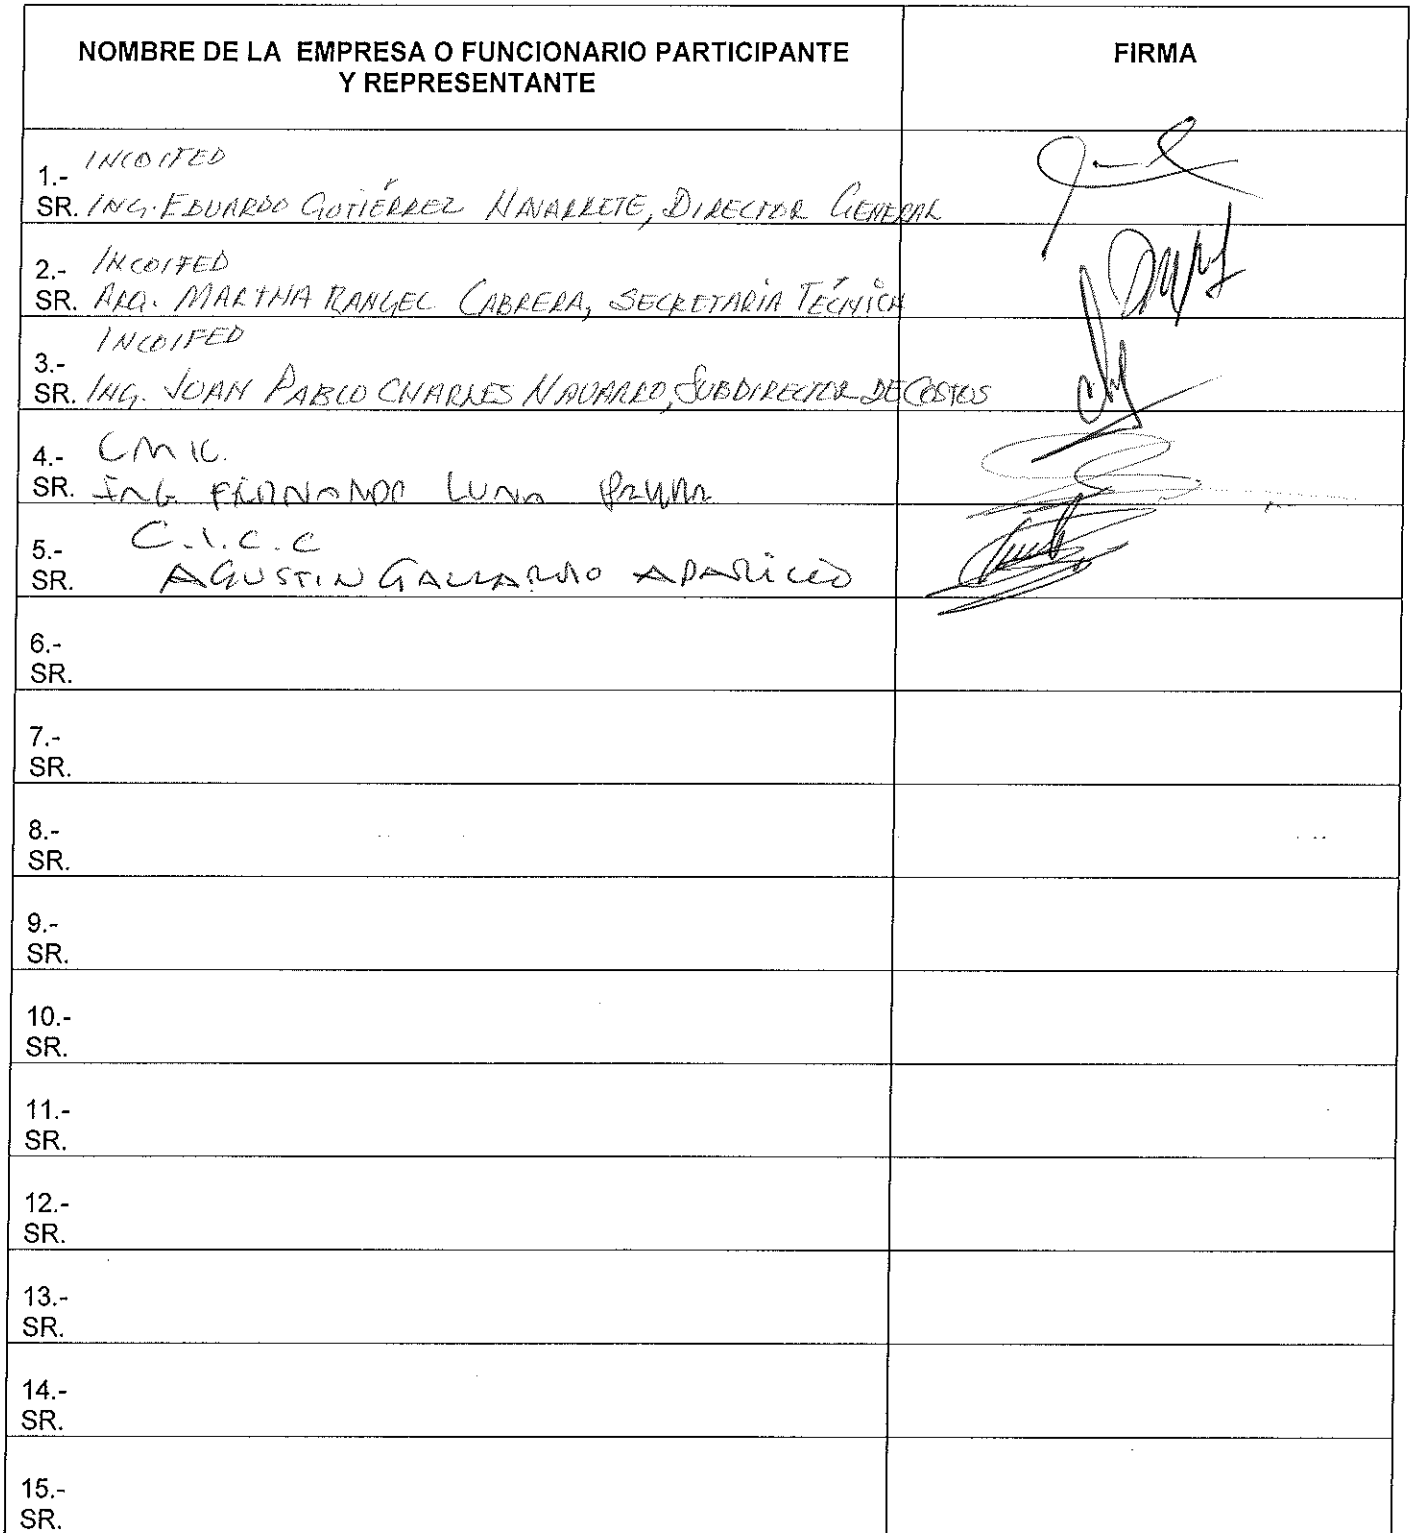 NOMBRE DE LA EMPRESA O FUNCIONARIO PARTICIPANTE
Y REPRESENTANTE
FIRMA
1.- INCOIFED
SR. ING. EDUARDO GUTIÉRREZ NAVARRETE, DIRECTOR GENERAL
2.- INCOIFED
SR. ARQ. MARTHA RANGEL CABRERA, SECRETARIA TÉCNICA
INCOIFED
3.-
SR. ING. JUAN PABLO CHARLES NAVARRO, SUBDIRECTOR DE COSTOS
4.- CMIC.
SR. ING FERNANDO LUNA
5.- C.I.C.C
SR. AGUSTIN GALLARDO APARICIO
6.-
SR.
7.-
SR.
8.-
SR.
9.-
SR.
10.-
SR.
11.-
SR.
12.-
SR.
13.-
SR.
14.-
SR.
15.-
SR.